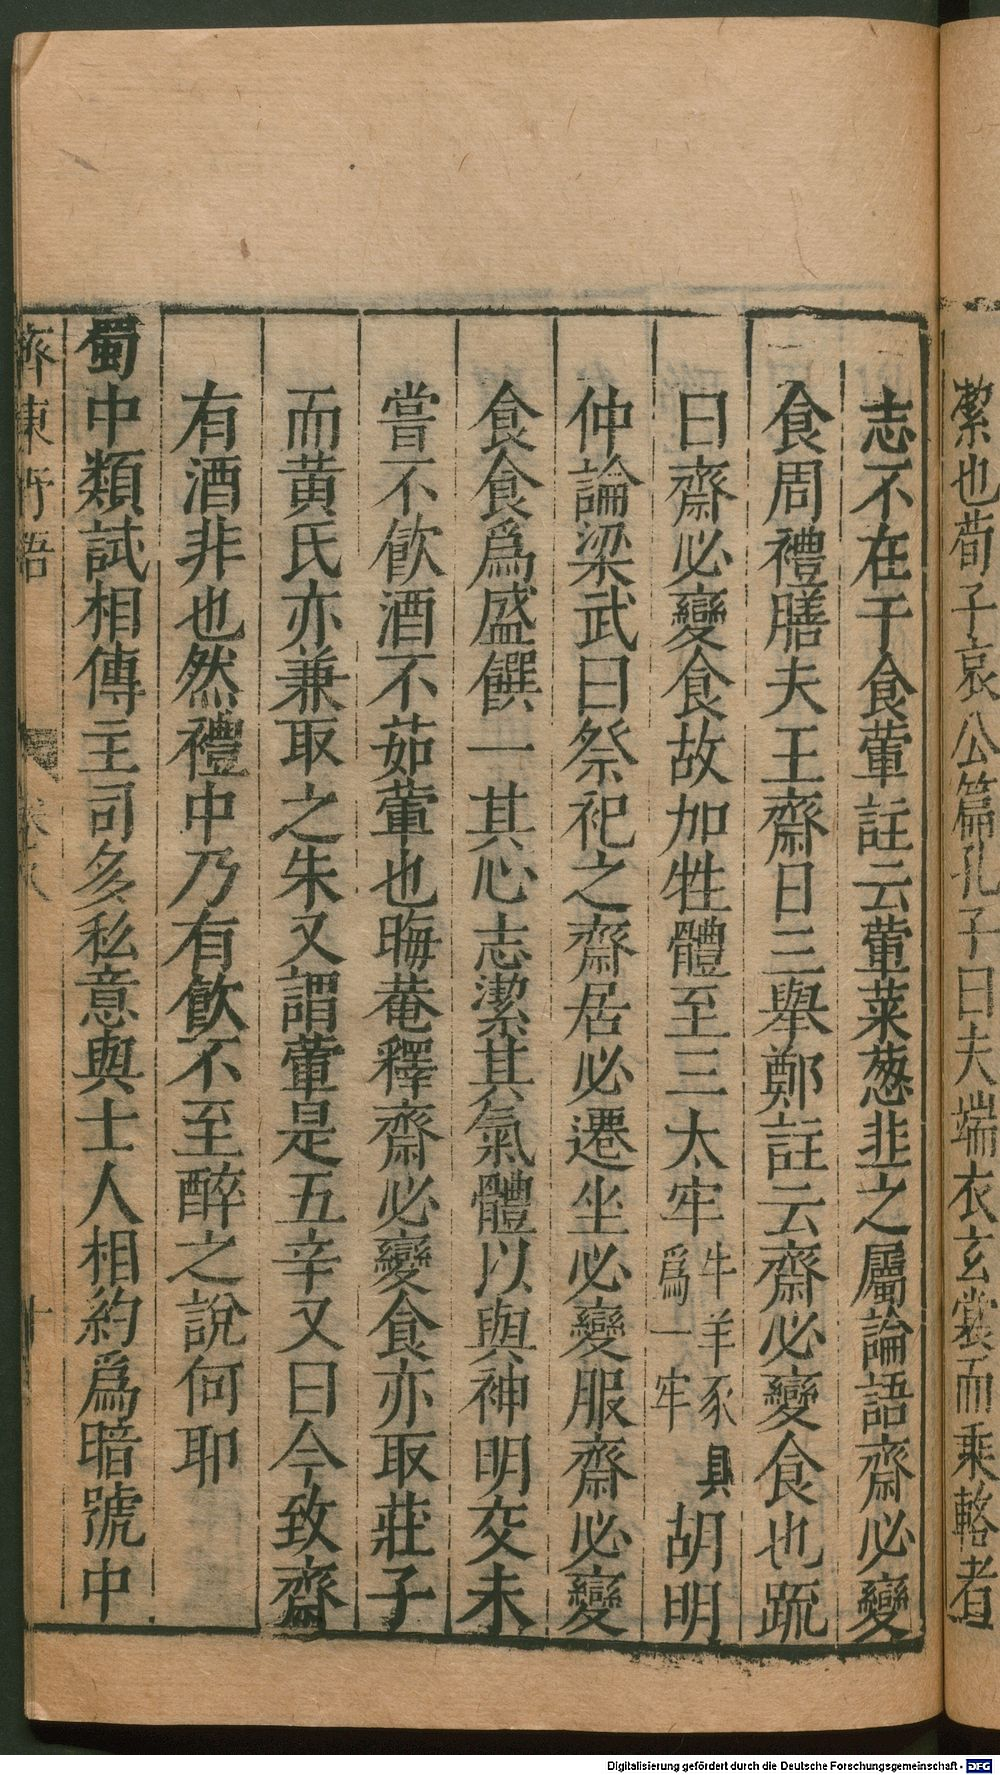 潔也荀子哀公篇孔子曰夫端衣玄裳而乗輅者
志不在于食葷註云葷菜葱韭之屬論語齋必變
食周禮膳夫王齋日三舉鄭註云齋必變食也疏
曰齋必變食故加牲體至三太牢牛羊豕具爲一牢胡明
仲論梁武曰祭祀之齋居必遷坐必變服齋必變
食食爲盛饌一其心志潔其氣體以與神明交未
嘗不飲酒不茹葷也晦菴釋齋必變食亦取莊子
而黄氏亦兼取之朱又謂葷是五辛又曰今致齋
有酒非也然禮中乃有飲不至醉之說何耶
蜀中類試相傳主司多私意與士人相約爲暗號中
齊東野語
十
Digitalisierung gefördert durch die Deutsche Forschungsgemeinschaft - DFG